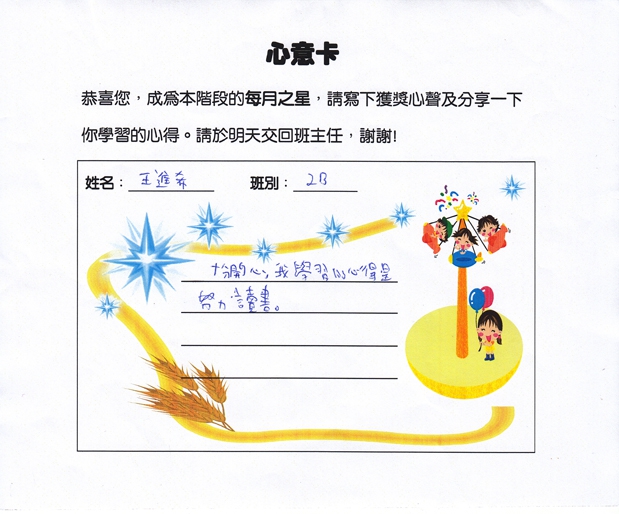 心意卡
恭喜您，成為本階段的每月之星，請寫下獲獎心聲及分享一下
你學習的心得。請於明天交回班主任，謝謝!
姓名：王進希
班別：2B
十分開心，我學習的心得是
努力讀書。